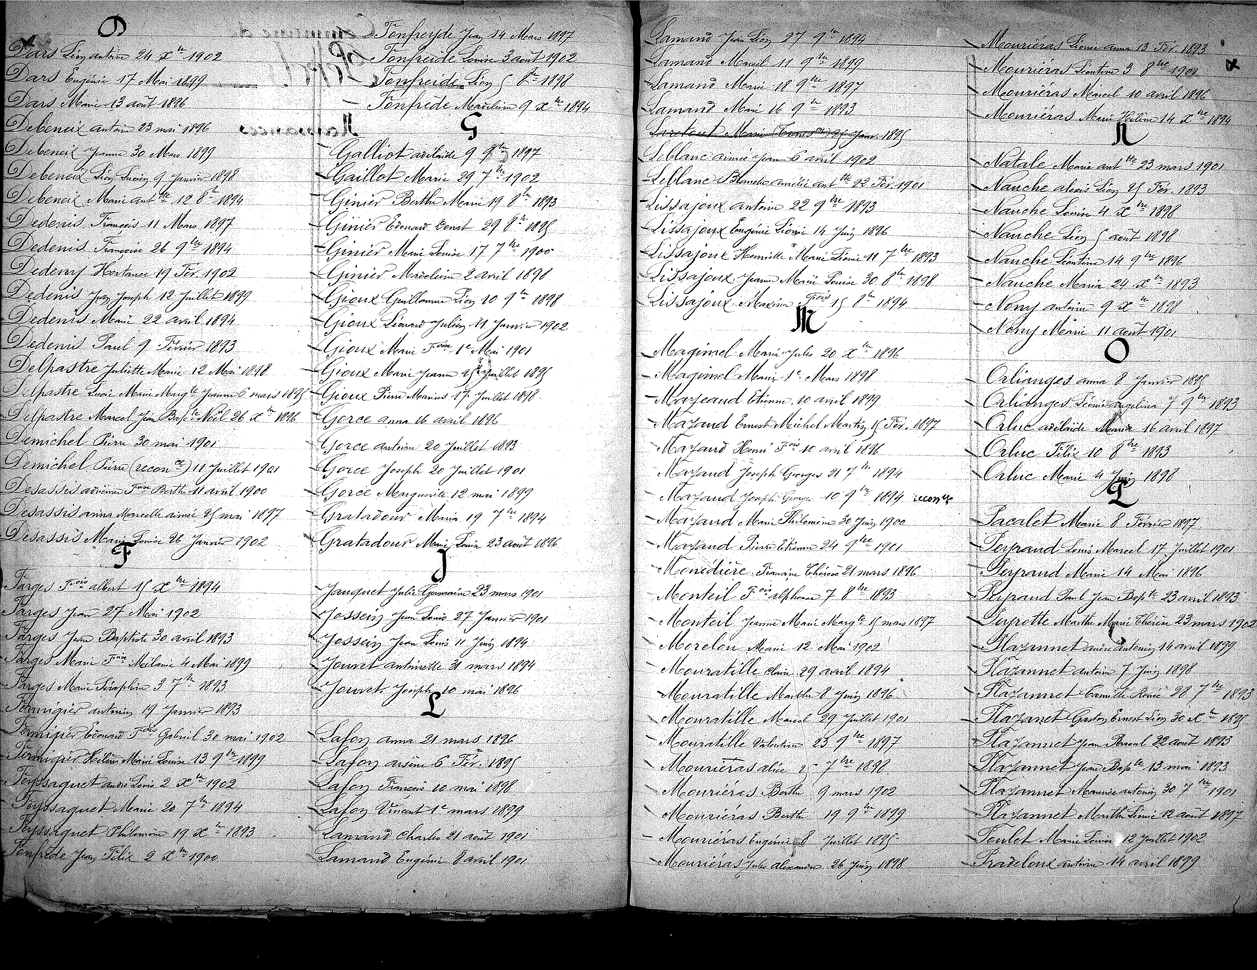 D
Dars Léon antoine 24 Xbre 1902
Dars Eugénie 17 Mai 1899
Dars Marie 13 août 1896
Debeneix antoine 23 mai 1896
Debeneix Jeanne 30 Mars 1899
Debeneix Léon Lucien 9 Janvier 1898
Debeneix Marie antte 12 8bre 1894
Dedenis François 11 Mars 1897
Dedenis Françoise 26 9bre 1894
Dedenis Hortance 19 Fér. 1902
Dedenis Jean Joseph 12 Juillet 1899
Dedenis Marie 22 avril 1894
Dedenis Paul 9 Février 1893
Delpastre Juliette Marie 12 Mai 1898
Delpastre Marie Margte Jeanne 6 mars 1895
Delpastre Marcel Jean Bapte Noël 26 Xbre 1896
Demichel Pierre 30 mai 1901
Demichel Pierre (reconce) 11 Juillet 1901
Desassis Fçoise Berthe 11 avril 1900
Desassis anna Marcelle aimée 25 mai 1897
Desassis Marie Louise 26 Janvier 1902
F
Farges Fçois albert 15 Xbre 1894
Farges Jean 27 Mai 1902
Farges Jean Baptiste 30 avril 1893
Farges Marie Fçoise Mélanie 4 Mai 1899
Farges Marie Séraphin 3 7bre 1893
antoine 19 Janvier 1893
Édouard Gabriel 30 mai 1902
Marie Louise 13 9bre 1899
Feyssaguet Louis 2 Xbre 1902
Feyssaguet Marie 20 7bre 1894
Feyssaguet Philomène 19 Xbre 1893
Fonfrède Jean Félix 2 Xbre 1900
Fonfreyde Jean 14 Mars 1897
Fonfreide Louise 3 août 1902
Fonfreide Léon 5 8bre 1898
Fonfrède Madeleine 9 Xbre 1894
G
Galliot adélaïde 9 9bre 1897
Gaillot Marie 29 7bre 1902
Ginier Berthe Marie 19 8bre 1893
Ginier Édouard Ernest 29 8bre 1895
Ginier Marie Louise 17 7bre 1900
Ginier Madeleine 2 avril 1896
Gioux Guillaume Léon 10 9bre 1898
Gioux Léonard Julien 11 Janvier 1902
Gioux Marie Fçoise 1er Mai 1901
Gioux Marie Jeanne Juillet 1895
Gioux Pierre Marius 17 Juillet 1898
Gorce anna 16 avril 1896
Gorce antoine 20 Juillet 1893
Gorce Joseph 20 Juillet 1901
Gorce Marguerite 12 mai 1899
Gratadour Maria 19 7bre 1894
Gratadour Marie Louise 23 août 1896
J
Jauguet Julie Germaine 23 mars 1901
Jossein Jean Louis 27 Janvier 1901
Jossein Jean Louis 11 Juin 1894
Jouvet antoinette 31 mars 1894
Jouvet Joseph 10 mai 1896
L
Lafon anna 21 mars 1896
Lafon arsène 6 Fér. 1895
Lafon François 10 mai 1898
Lafon Vincent 1er mars 1899
Lamand Charles 21 août 1901
Lamand Eugénie 8 avril 1901
Lamand Jean Léon 27 9bre 1894
Lamand Marcel 11 9bre 1899
Lamand Marie 18 9bre 1897
Lamand Marie 16 9bre 1893
Leblanc aimée Jeanne 6 avril 1902
Leblanc Blanche amélie antte 22 Fér. 1901
Lissajoux antoine 22 9bre 1893
Lissajoux Eugénie Léonie 14 Juin 1896
Lissajoux Henriette Marie Léonie 11 7bre 1893
Lissajoux Jeanne Marie Louise 30 8bre 1898
Lissajoux Maxime 15 8bre 1894
M
Maginel Marie Jules 20 Xbre 1896
Maginel Marie 1er Mars 1898
Mazeaud Étienne 10 avril 1899
Mazaud Ernest Michel Martin 15 Fér. 1897
Mazaud Henri Fçois 10 avril 1896
Mazaud Joseph Georges 21 7bre 1894
Mazaud Joseph George 10 9bre 1894 reconce
Mazaud Marie Philomène 30 Juin 1900
Mazaud Pierre Étienne 24 9bre 1901
Monédière Thérèse 21 mars 1896
Monteil Fçois alphonse 7 8bre 1893
Monteil Jeanne Marie Margte 15 mars 1897
Morelon Marie 12 Mai 1902
Mouratille Claire 29 avril 1894
Mouratille Marthe 8 Juin 1896
Mouratille Marcel 29 Juillet 1901
Mouratille Valentine 23 9bre 1897
Mouriéras alice 7bre 1898
Mouriéras Berthe 9 mars 1902
Mouriéras Berthe 19 9bre 1899
Mouriéras Eugénie 8 Juillet 1895
Mouriéras Jules alexandre 26 Juin 1898
Mouriéras Léonie anna 13 Fér. 1893
Mouriéras Léontine 3 8bre 1901
Mouriéras Marcel 10 avril 1896
Mouriéras Marie Hélène 14 Xbre 1894
N
Natale Marie antte 23 mars 1901
Nauche alexis Léon 25 Fér. 1893
Nauche Léonie 4 Xbre 1898
Nauche Léon 5 août 1898
Nauche Léontine 14 9bre 1896
Nauche Maria 24 Xbre 1893
Nony antoine 9 Xbre 1898
Nony Marie 11 août 1901
O
Orlianges anna 8 Janvier 1895
Orlianges Léonie angelina 7 9bre 1893
Orluc adélaïde Marie 16 avril 1897
Orluc Félix 10 8bre 1893
Orluc Marie 4 Juin 1898
P
Pacalet Marie 8 Février 1897
Peyraud Louis Marcel 17 Juillet 1901
Peyraud Marie 14 Mai 1896
Peyraud Paul Jean Bapte 23 avril 1893
Peyrotte Marthe Marie Thérèse 23 mars 1902
Plazannet antonin 14 avril 1899
Plazannet antoine 7 Juin 1898
Plazannet Camille Renée 28 7bre 1893
Plazannet Gaston Ernest Léon 30 Xbre 1895
Plazannet Jean 22 août 1893
Plazannet Jean Bapte 13 mai 1893
Plazannet Maurice antoine 30 7bre 1901
Plazannet Marthe Léonie 12 août 1897
Poulet Marie Louise 12 Juillet 1902
Pradeloux antoine 14 avril 1899